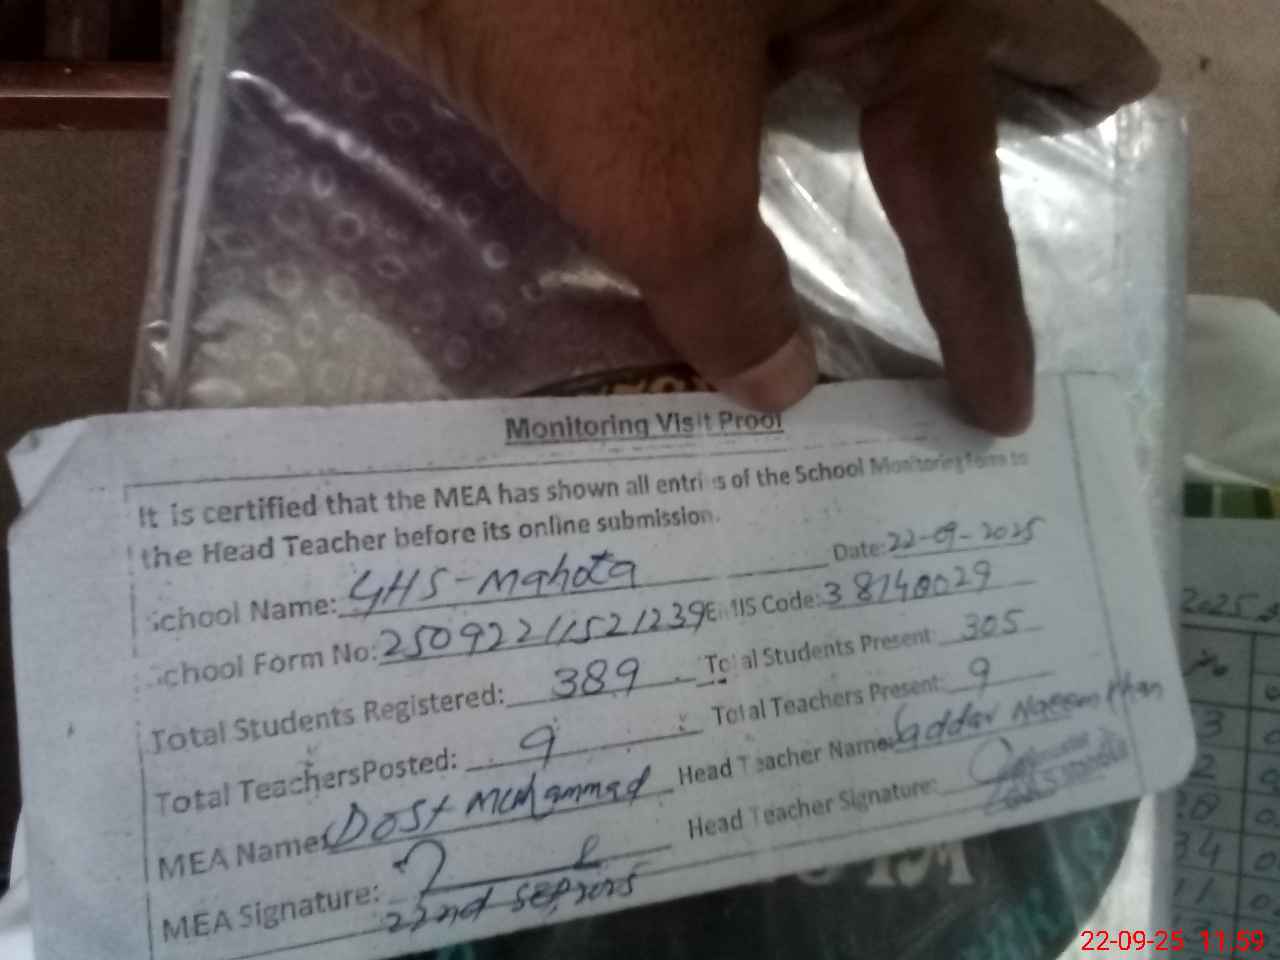 Monitoring Visit Proof
It is certified that the MEA has shown all entries of the School Monitoring Form to
the Head Teacher before its online submission.
School Name: GHS-Mahota Date: 22-09-2025
School Form No: 25092211521239 EMIS Code: 38140029
Total Students Registered: 389 Total Students Present: 305
Total TeachersPosted: 9 Total Teachers Present: 9
MEA Name: Dost Muhammad Head Teacher Name: Naeem Khan
MEA Signature: Head Teacher Signature:
22nd SEP, 2025
2025
3
2
28
34
11
22-09-25 11:59